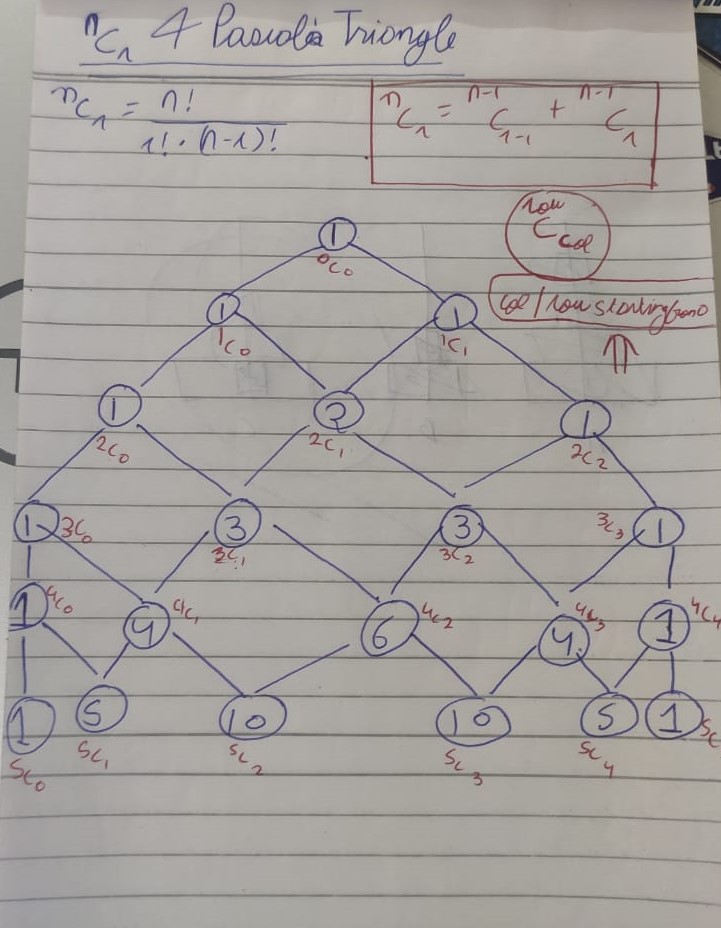 ⁿCᵣ & Pascal's Triangle
ⁿCᵣ = n! / r! · (n-r)!
ⁿCᵣ = ⁿ⁻¹Cᵣ₋₁ + ⁿ⁻¹Cᵣ
row C col
col/row starting from 0
⇑
1
⁰C₀
1 1
¹C₀ ¹C₁
1 2 1
2C₀ 2C₁ 2C₂
1 3C₀ 3 3 3C₃ 1
3C₁ 3C₂
1 4C₀ 4 4C₁ 6 4C₂ 4 4C₃ 1 4C₄
1 5 10 10 5 1
5C₀ 5C₁ 5C₂ 5C₃ 5C₄ 5C